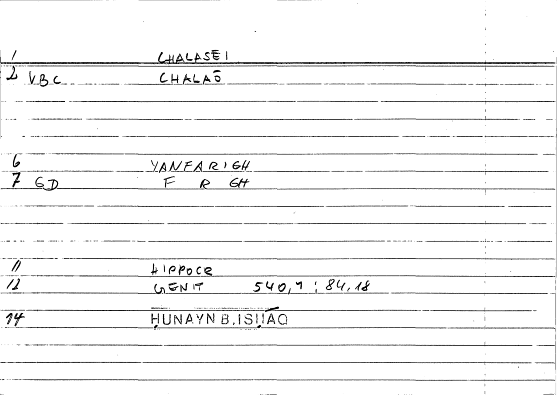 1 CHALASĒI
2 VBC CHALAŌ
6 YANFARIGH
7 GD F R GH
11 HIPPOCR
12 GENIT 540,9 : 84,18
14 ḤUNAYN B.ISḤĀQ